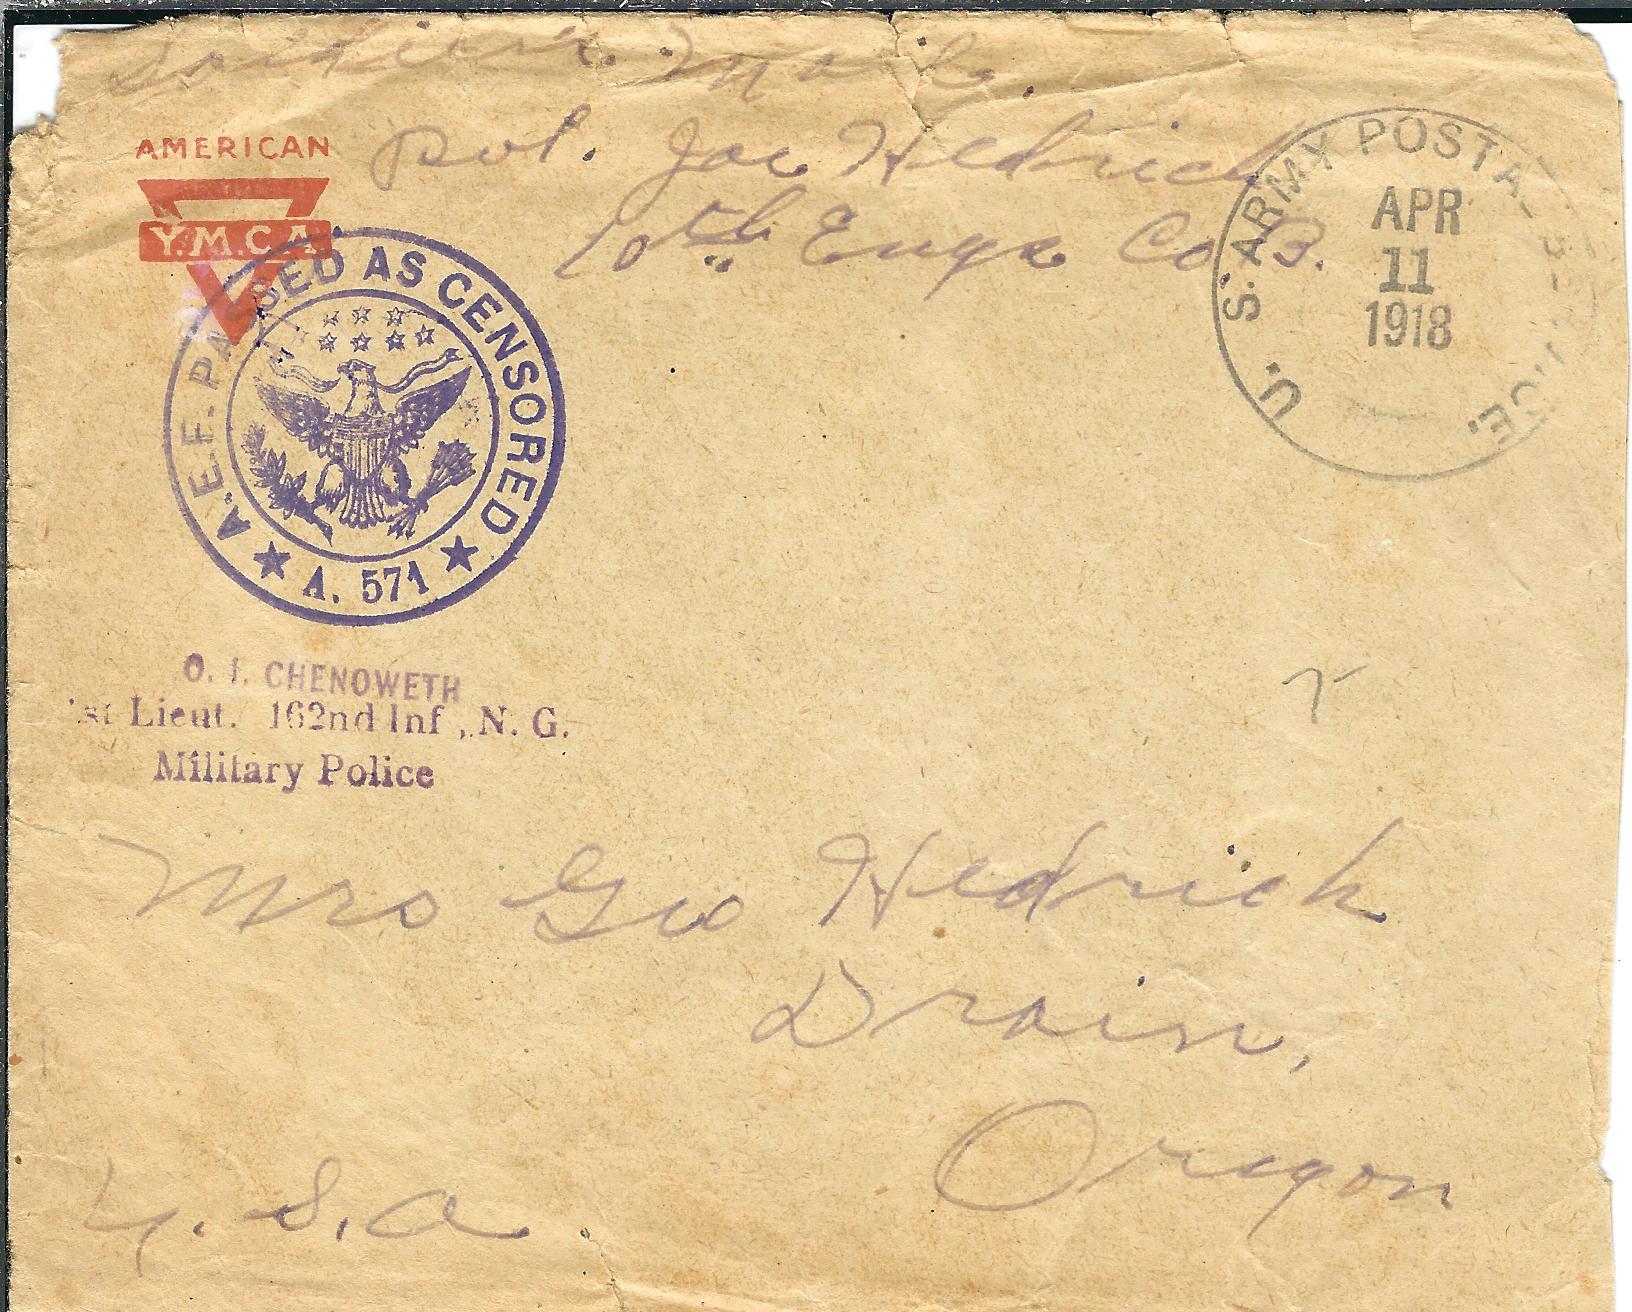 Soldiers Mail.
Pvt. Joe Hedrick
10th Engrs Co B.
AMERICAN
Y.M.C.A.
U. S. ARMY POSTAL SERVICE.
APR
11
1918
A.E.F. PASSED AS CENSORED
A. 571
O. I. CHENOWETH
1st Lieut. 162nd Inf., N. G.
Military Police
Mrs Geo Hedrick
Drain,
Oregon
U.S.A.